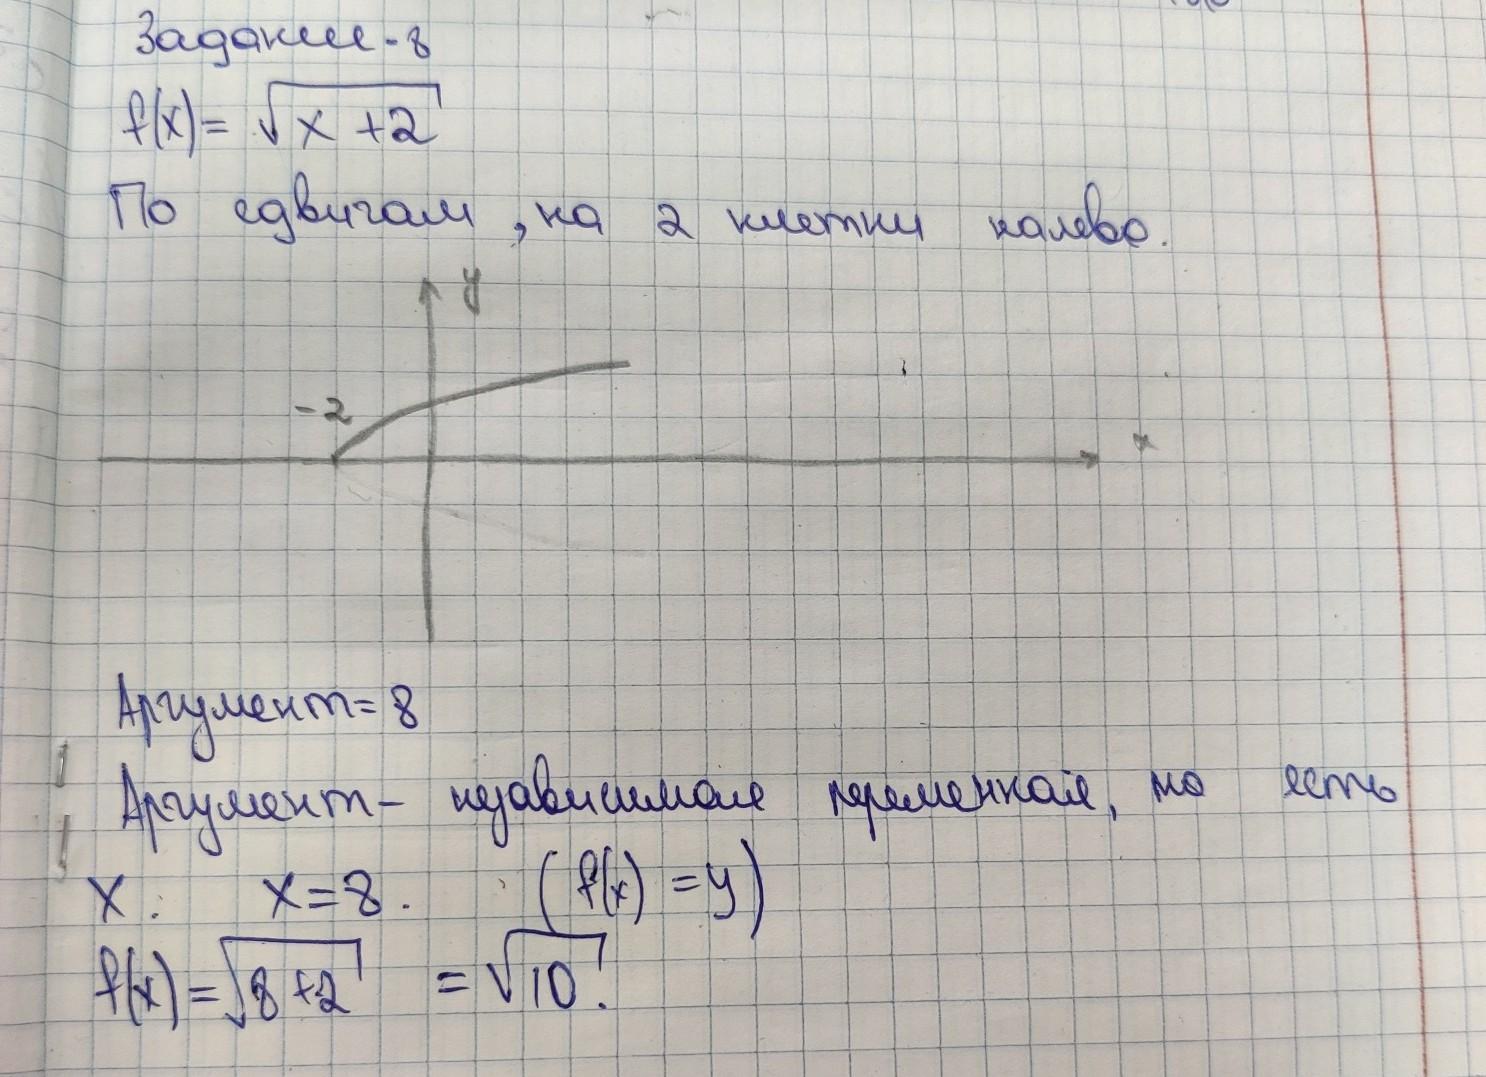 Задание - 8
f(x) = √(x + 2)
По сдвигам, на 2 клетки налево.
y
-2
x
Аргумент = 8
Аргумент - независимая переменная, то есть
x. x = 8. (f(x) = y)
f(x) = √(8 + 2) = √10.